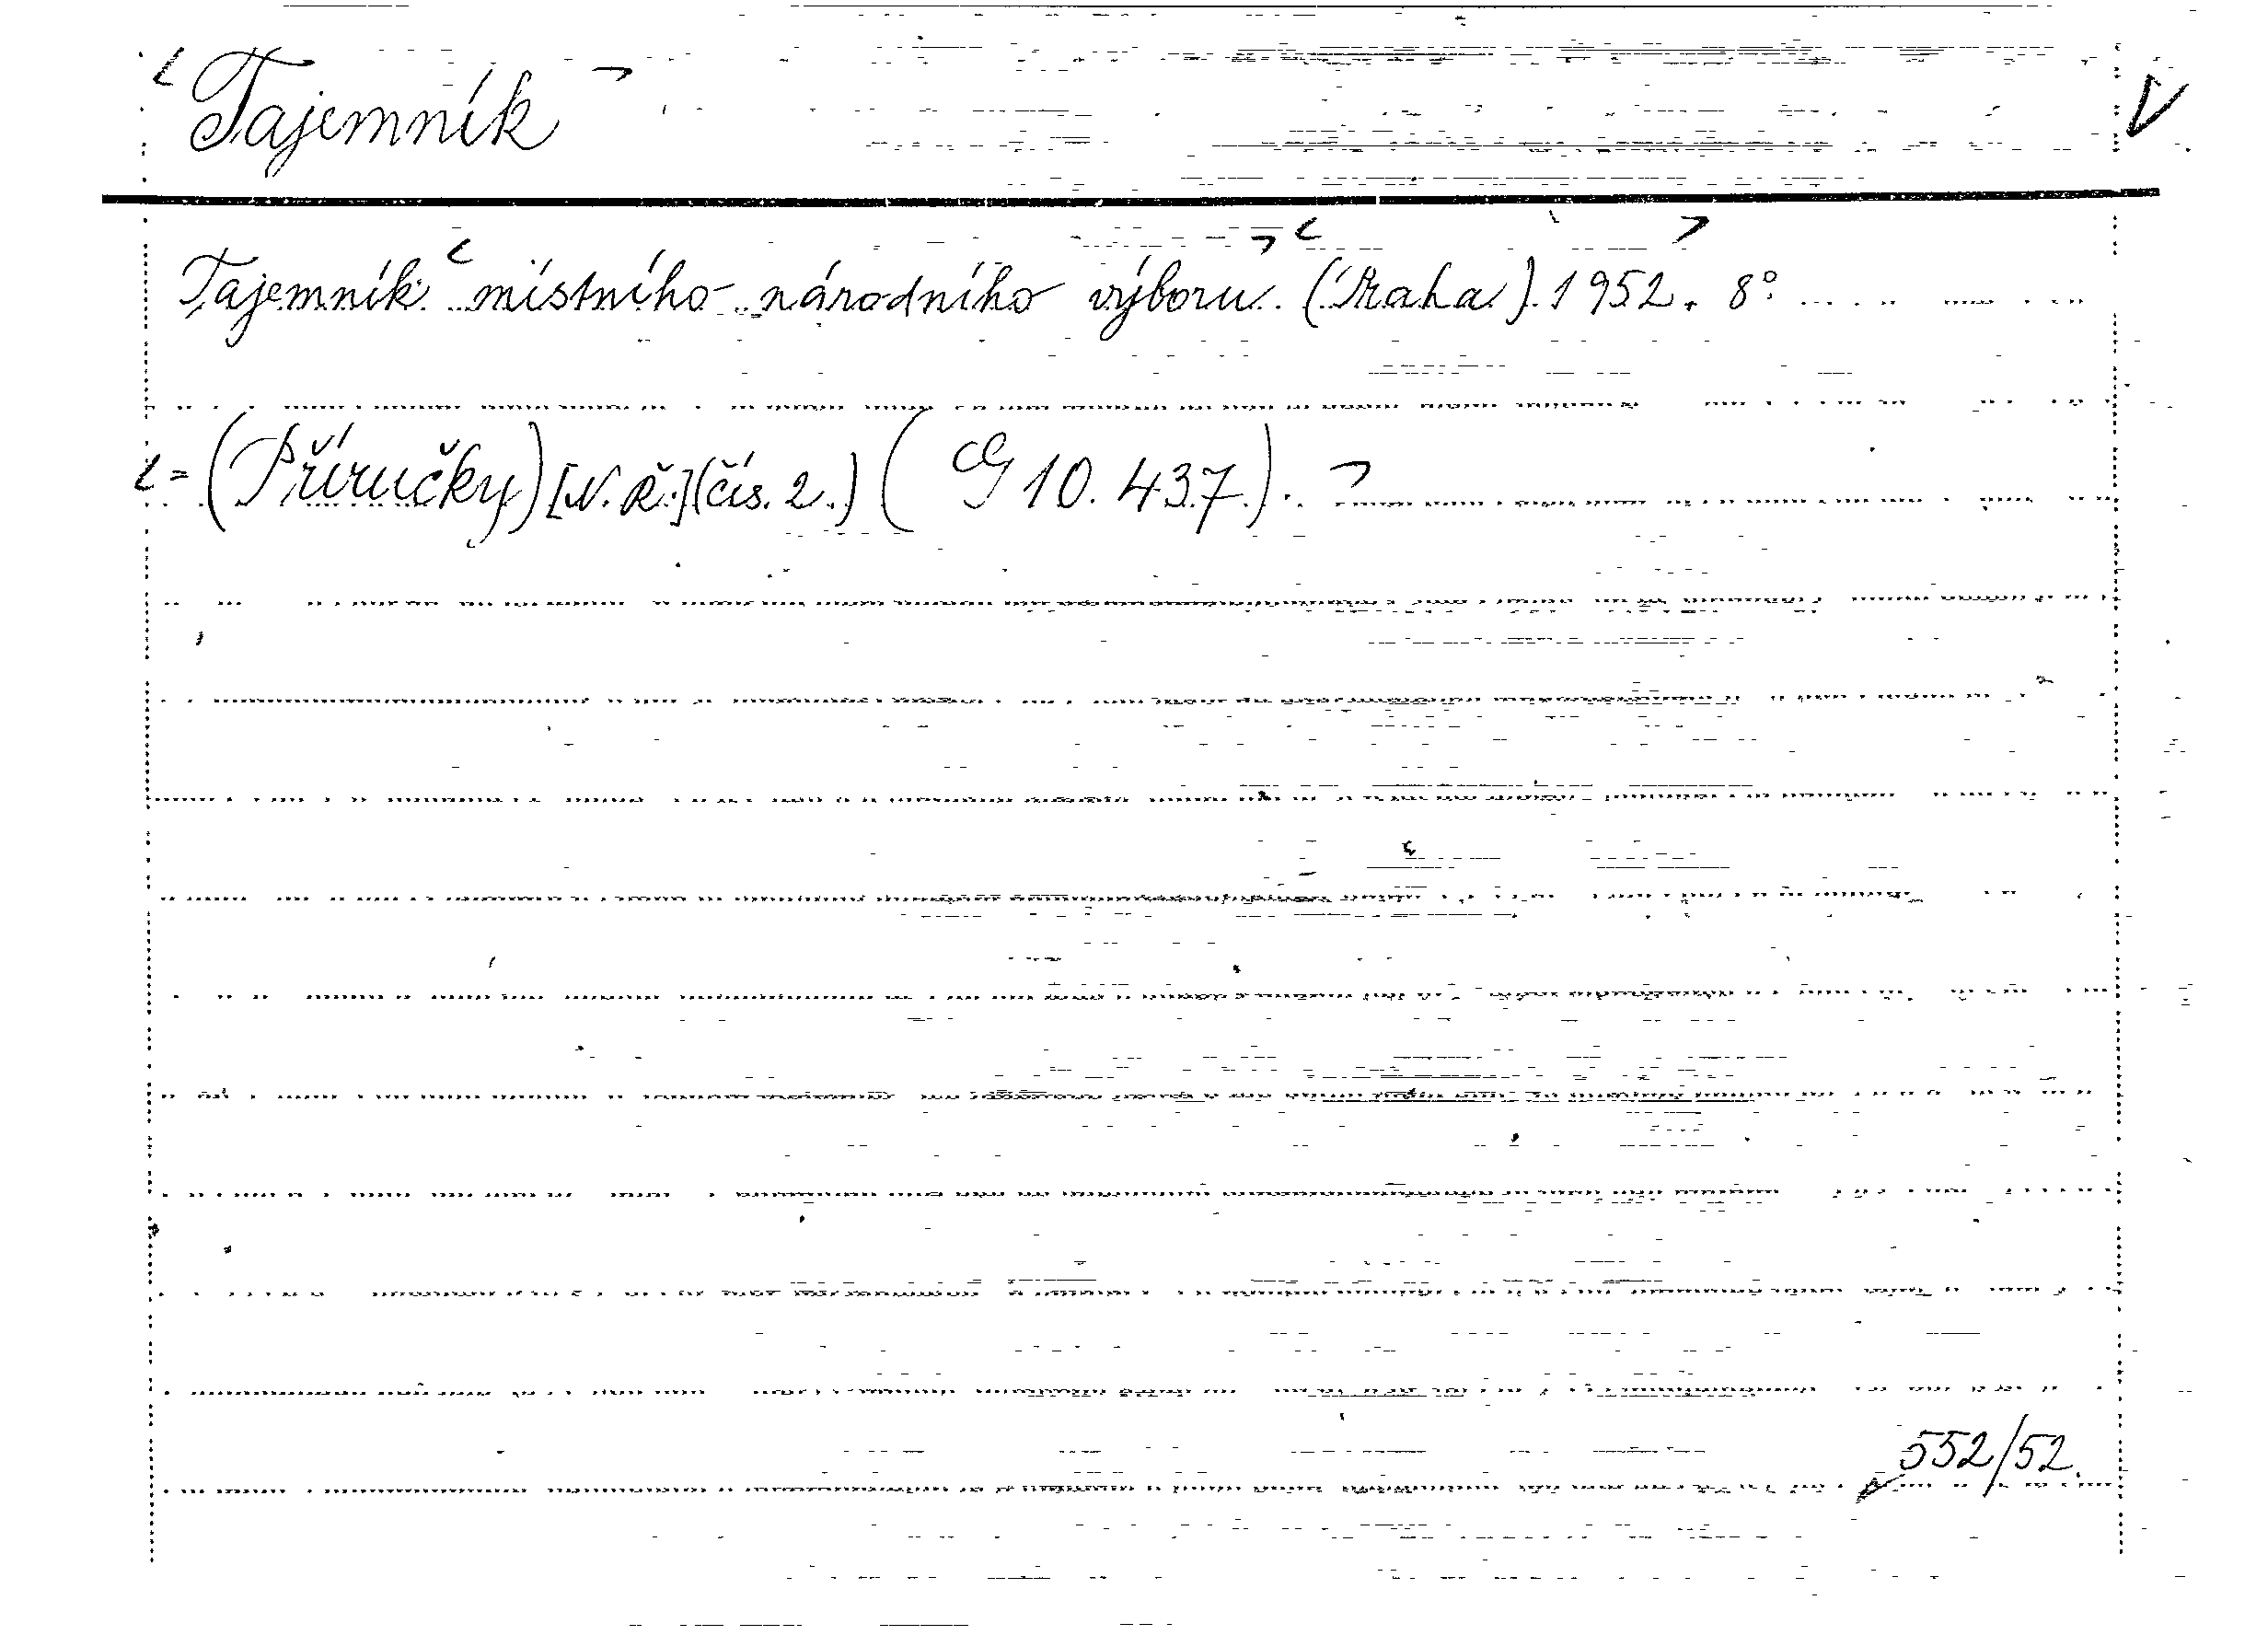 Tajemník
Tajemník místního národního výboru. (Praha). 1952. 8°.
= (Příručky) [N. Ř.] (čís. 2.) (G 10.437.).
552/52.